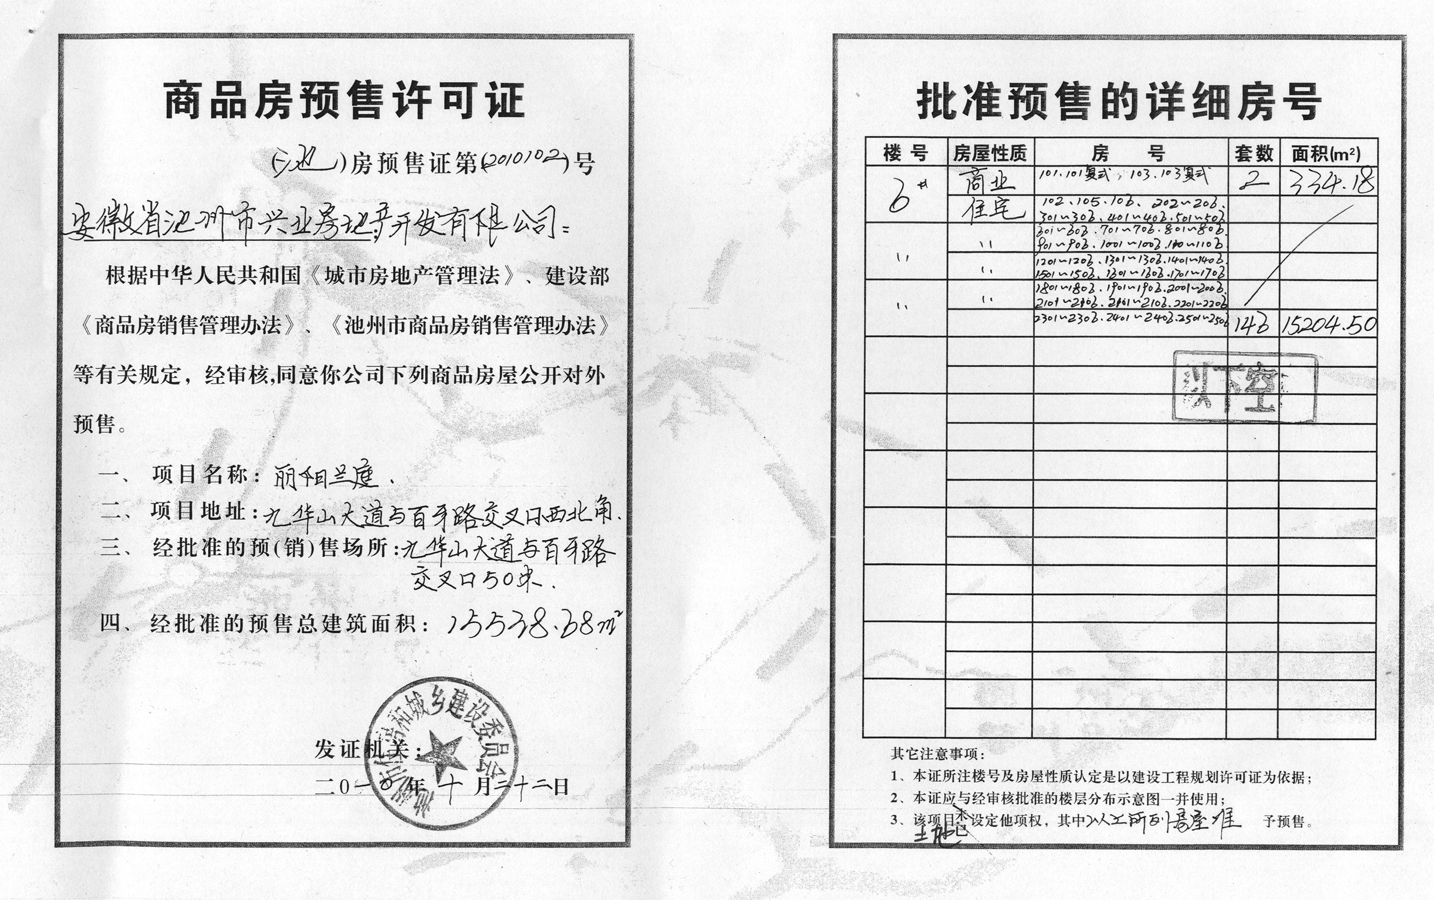 商品房预售许可证
(池)房预售证第(2010102)号
安徽省池州市兴业房地产开发有限公司:
根据中华人民共和国《城市房地产管理法》、建设部
《商品房销售管理办法》、《池州市商品房销售管理办法》
等有关规定，经审核,同意你公司下列商品房屋公开对外
预售。
一、项目名称: 丽阳兰庭.
二、项目地址: 九华山大道与百牙路交叉口西北角.
三、经批准的预(销)售场所: 九华山大道与百牙路
交叉口50米.
四、经批准的预售总建筑面积: 15538.68m²
发证机关:
池州市住房和城乡建设委员会
二0一0年十月二十二日
批准预售的详细房号
楼号 房屋性质 房号 套数 面积(m²)
6# 商业 101.101复式、103.103复式 2 334.18
住宅 102.105.106、202~206.
301~306.401~406.501~506
601~606.701~706.801~806
〃 901~906.1001~1006.1101~1106
〃 1201~1206.1301~1306.1401~1406
〃 1501~1506.1601~1606.1701~1706
1801~1806.1901~1906.2001~2006.
〃 〃 2101~2106.2201~2206
2301~2306.2401~2406.2501~2506 146 15204.50
以下空
其它注意事项:
1、本证所注楼号及房屋性质认定是以建设工程规划许可证为依据;
2、本证应与经审核批准的楼层分布示意图一并使用;
3、该项目土地未已设定他项权，其中以上所列房屋准 予预售。